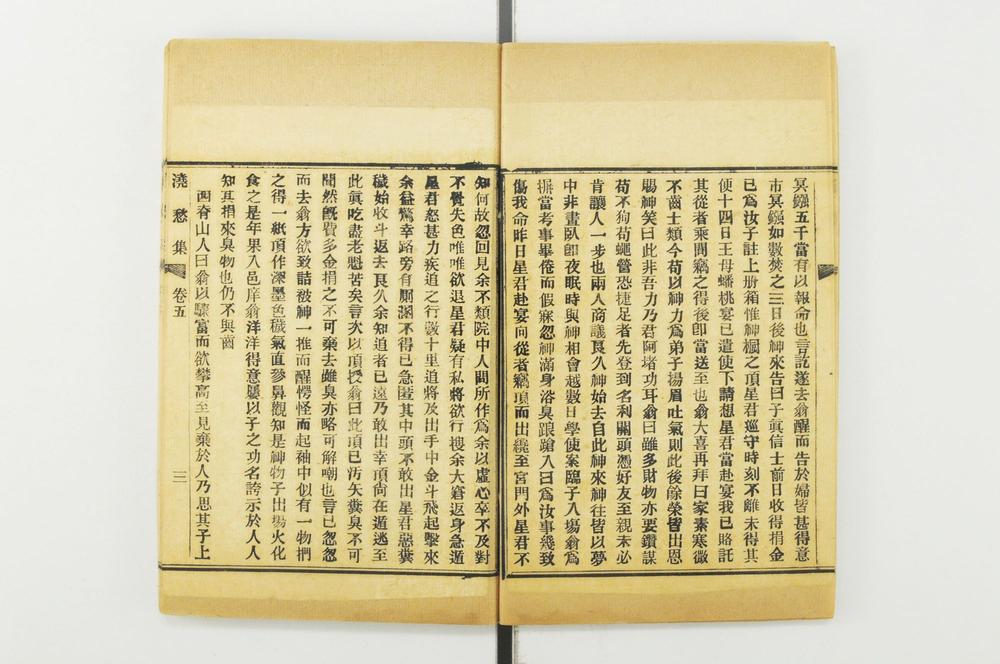 冥鏹五千當有以報命也言訖遂去翁醒而告於婦皆甚得意
市冥鏹如數焚之三日後神來告曰子眞信士前日收得捐金
已爲汝子註上册箱惟神櫃之頂星君巡守時刻不離未得其
使十四日王母蟠桃宴已遣使下請想星君當赴宴我已賂託
其從者乘間竊之得後卽當送至也翁大喜再拜曰家素寒微
不齒士類今苟以神力爲弟子揚眉吐氣則此後餘榮皆出恩
賜神笑曰此非吾力乃君阿堵功耳翁曰雖多財物亦要鑽謀
苟不狗苟蠅營恐捷足者先登到名利關頭憑好友至親未必
肯讓人一步也兩人商議良久神始去自此神來神往皆以夢
中非晝臥卽夜眠時與神相會越數日學使案臨子入塲翁爲
摒當考事畢倦而假寐忽神滿身浴臭踉蹌入曰爲汝事幾致
傷我命昨日星君赴宴向從者竊頂而出繞至宮門外星君不
知何故忽回見余不類院中人問所作爲余以虛心卒不及對
不覺失色唯唯欲退星君疑有私將欲行搜余大窘返身急遁
星君怒甚力疾追之行數十里追將及出手中金斗飛起擊來
余益驚幸路旁有厠溷不得已急匿其中頭不敢出星君惡糞
穢始收斗返去良久余知追者已遠乃敢出幸頂尙在遁逃至
此眞吃盡老魁苦矣言次以頂授翁曰此頂已汚矢糞臭不可
聞然旣費多金捐之不可棄去雖臭亦略可解嘲也言已忽忽
而去翁方欲致詰被神一推而醒愕怪而起袖中似有一物捫
之得一紙頂作深墨色穢氣直豖鼻觀知是神物子出塲火化
食之是年果入邑庠翁洋洋得意屢以子之功名誇示於人人
知其捐來臭物也仍不與齒
西脊山人曰翁以驟富而欲攀高至見棄於人乃思其子上
澆愁集 卷五 三